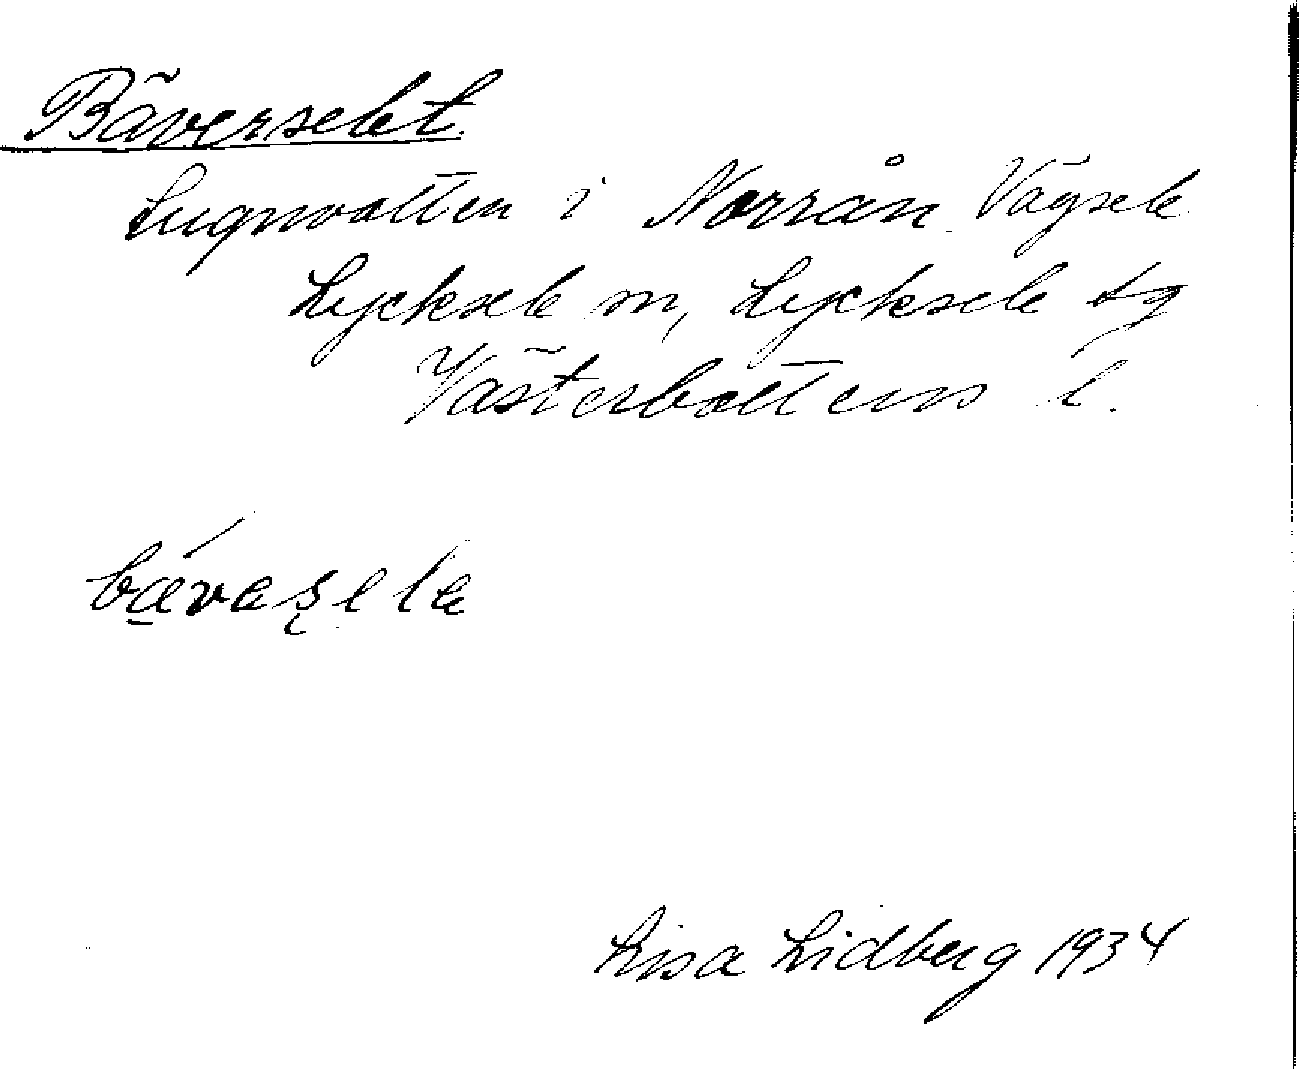 Bäverselet
Lugnvatten i Norrån Vägsele
Lycksele sn, Lycksele tg
Västerbottens l.
bæ̀vaʂela
Lisa Lidberg 1934